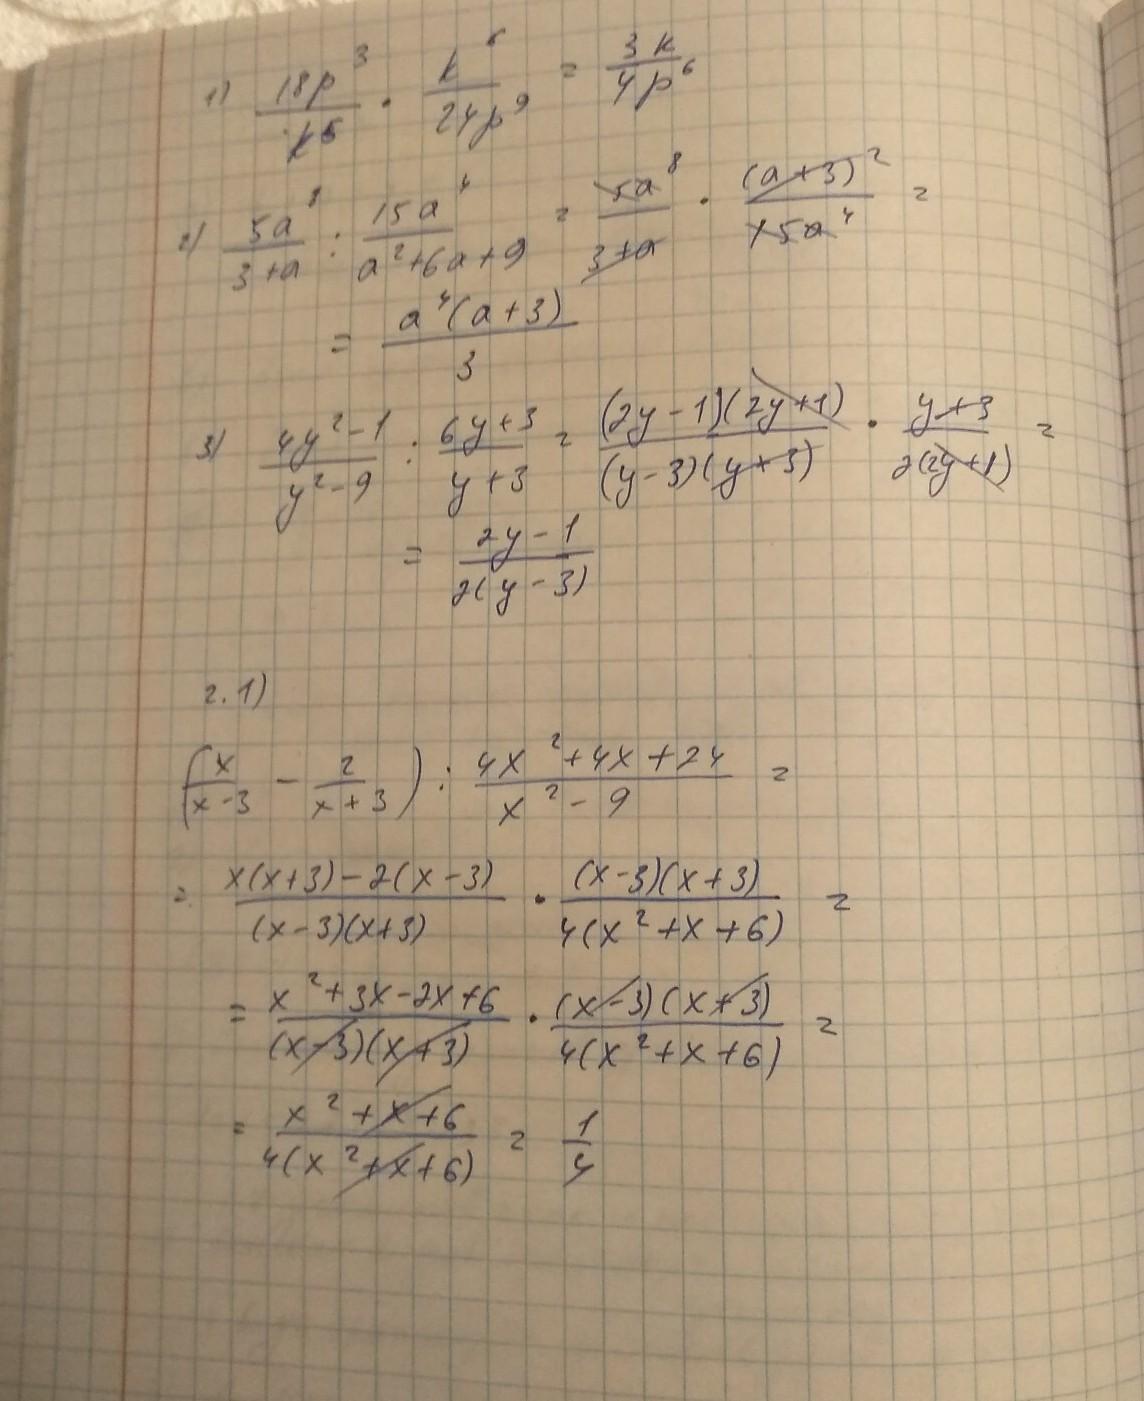 1) 18p³/k⁵ · k⁶/24p⁹ = 3k/4p⁶
2) 5a⁸/3+a : 15a⁴/a²+6a+9 = 5a⁸/3+a · (a+3)²/15a⁴ =
= a⁴(a+3)/3
3) 4y²-1/y²-9 : 6y+3/y+3 = (2y-1)(2y+1)/(y-3)(y+3) · y+3/2(2y+1) =
= 2y-1/2(y-3)
2.1)
(x/x-3 - 2/x+3) : 4x²+4x+24/x²-9 =
= x(x+3)-2(x-3)/(x-3)(x+3) · (x-3)(x+3)/4(x²+x+6) =
= x²+3x-2x+6/(x-3)(x+3) · (x-3)(x+3)/4(x²+x+6) =
= x²+x+6/4(x²+x+6) = 1/4